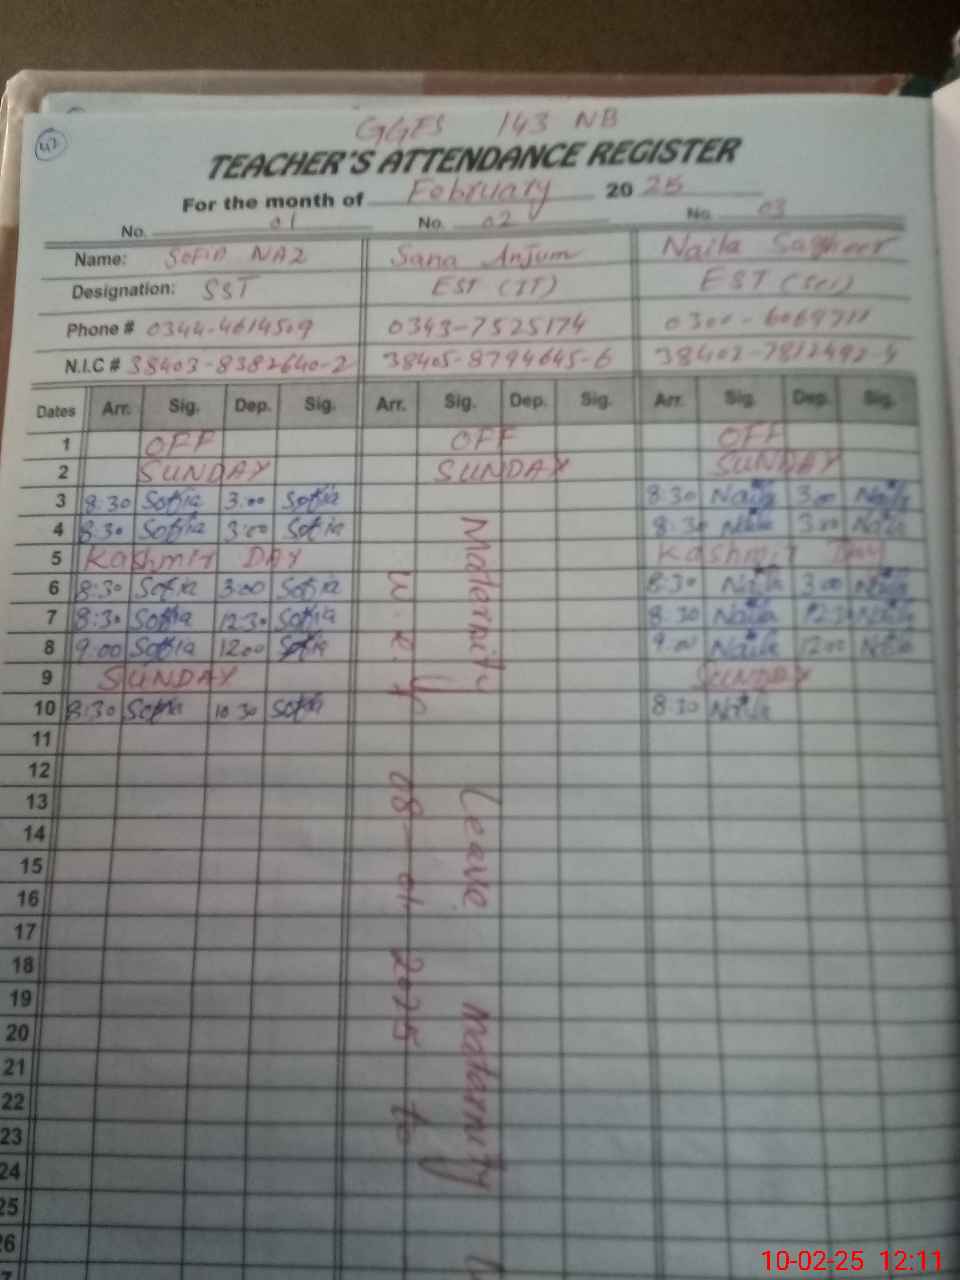 42
GGES 143 NB
TEACHER'S ATTENDANCE REGISTER
For the month of February 2025
No. 01 No. 02 No. 03
Name: SOFIA NAZ Sana Anjum Naila Sagheer
Designation: SST EST (IT) EST (Sci)
Phone # 0344-4614509 0343-7525174
N.I.C # 38403-8382640-2 38405-8794645-6
Dates Arr. Sig. Dep. Sig. Arr. Sig. Dep. Sig. Arr. Sig. Dep. Sig.
1 OFF OFF OFF
2 SUNDAY SUNDAY SUNDAY
3 8:30 Sofia 3.00 Sofia 8:30 Naila 3.00 Naila
4 8:30 Sofia 3:00 Sofia 8:30 Naila 3.00 Naila
5 Kashmir DAY Kashmir Day
6 8:30 Sofia 3.00 Sofia 8:30 Naila 3.00 Naila
7 8:30 Sofia 12.30 Sofia 8.30 Naila 12.30 Naila
8 9:00 Sofia 12.00 Sofia 9.00 Naila 12.00 Naila
9 SUNDAY SUNDAY
10 8:30 Sofia 10.30 Sofia 8.30 Naila
11
12
13
14
15
16
17
18
19
20
21
22
23
24
25
26
Maternity Leave Maternity
w.e.f 08-01-2025 to
10-02-25 12:11